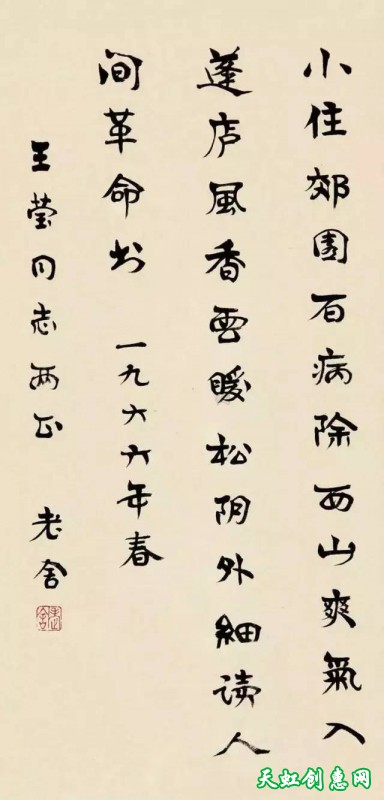 小住郊園百病除西山爽氣入
蓬庐風香雲暖松阴外細读人
间革命书 一九六六年春
王莹同志两正 老舍
老舍
天虹创惠网